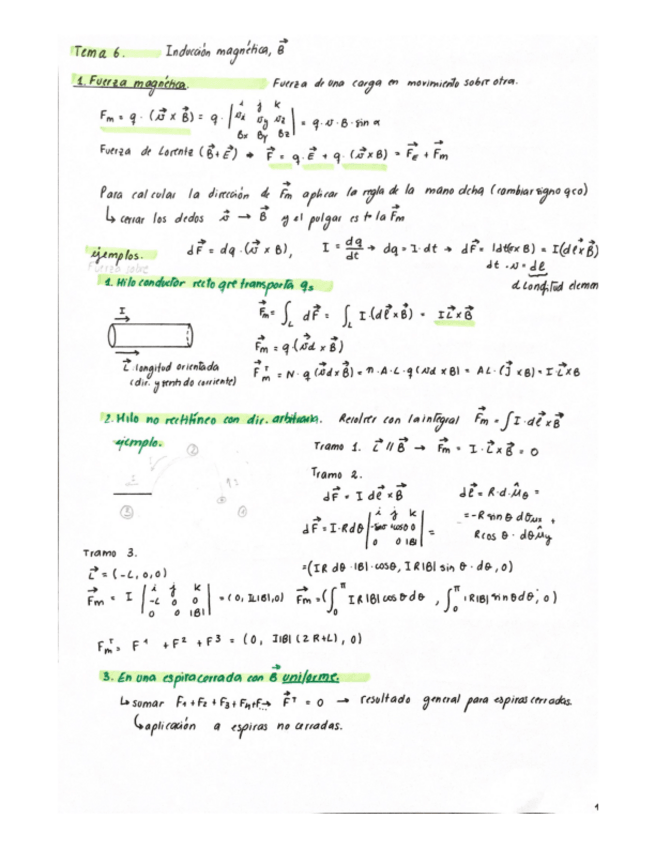 Tema 6. Inducción magnética, B⃗
1. Fuerza magnética. Fuerza de una carga en movimiento sobre otra.
Fm = q · (v⃗ x B⃗) = q · | i j k vx vy vz Bx By Bz | = q · v · B · sin α
Fuerza de Lorentz (B⃗+E⃗) → F⃗ = q · E⃗ + q · (v⃗ x B) = F⃗E + F⃗m
Para calcular la dirección de F⃗m aplicar la regla de la mano dcha (cambiar signo q<0)
↳ cerrar los dedos v⃗ → B⃗ y el pulgar es la F⃗m
ejemplos. dF⃗ = dq · (v⃗ x B⃗), I = dq/dt → dq = I · dt → dF⃗ = Idt(v⃗ x B) = I(dl⃗ x B⃗)
dt · v = dl⃗
Fuerza sobre
1. Hilo conductor recto que transporta qs
d longitud elemen
I
F⃗m = ∫L dF⃗ = ∫L I · (dl⃗ x B⃗) = IL⃗ x B⃗
F⃗m = q · (v⃗d x B⃗)
L⃗ : longitud orientada
(dir. y sentido corriente)
F⃗mᵀ = N · q (v⃗d x B⃗) = n · A · L · q (vd x B) = AL · (J⃗ x B) = I · L⃗ x B
2. Hilo no rectilíneo con dir. arbitraria. Resolver con la integral F⃗m = ∫ I · dl⃗ x B⃗
ejemplo. Tramo 1. L⃗ // B⃗ → F⃗m = I · L⃗ x B⃗ = 0
② ③ ①
Tramo 2.
dF⃗ = I dl⃗ x B⃗ dl⃗ = R · d · μ̂θ =
dF⃗ = I · Rdθ | i j k -sinθ cosθ 0 0 0 |B| | = = -R sin θ dθ μ̂x + R cos θ · dθ μ̂y
Tramo 3.
= (IR dθ · |B| · cosθ, IR|B| sin θ · dθ, 0)
L⃗ = (-L, 0, 0)
F⃗m = I | i j k -L 0 0 0 0 |B| | = (0, IL|B|, 0) F⃗m = (∫₀^π IR|B| cos θ dθ, ∫₀^π IR|B| sin θ dθ, 0)
F⃗mᵀ = F¹ + F² + F³ = (0, I|B| (2R+L), 0)
3. En una espira cerrada con B⃗ uniforme.
↳ sumar F1 + F2 + F3 + F4 + F... → F⃗ᵀ = 0 → resultado general para espiras cerradas.
↳ aplicación a espiras no cerradas.
1